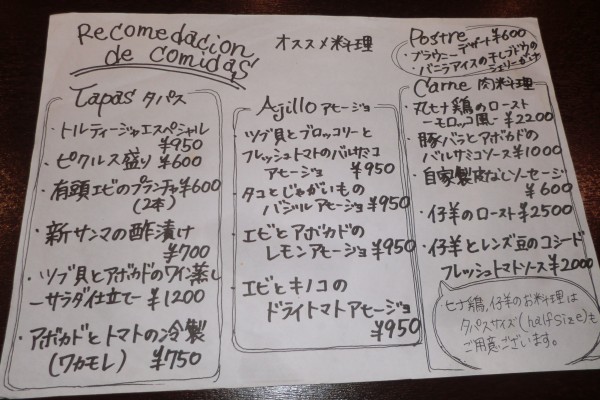 Recomedacion
de comidas
オススメ料理
Tapas タパス
・トルティージャエスペシャル
¥950
・ピクルス盛り ¥600
・有頭エビのプランチャ¥600
(2本)
・新サンマの酢漬け
¥700
・ツブ貝とアボカドのワイン蒸し
ーサラダ仕立てー ¥1200
・アボカドとトマトの冷製
(ワカモレ) ¥750
Ajillo アヒージョ
・ツブ貝とブロッコリーと
フレッシュトマトのバルサミコ
アヒージョ ¥950
・タコとじゃがいもの
バジルアヒージョ ¥950
・エビとアボカドの
レモンアヒージョ ¥950
・エビとキノコの
ドライトマトアヒージョ
¥950
Postre デザート ¥600
・ブラウニー
・バニラアイスの干しブドウの
シェリーがけ
Carne 肉料理
・丸ヒナ鶏のロースト
ーモロッコ風ー ¥2200
・豚バラとアボカドの
バルサミコソース ¥1000
・自家製皮なしソーセージ
¥600
・仔羊のロースト ¥2500
・仔羊とレンズ豆のコシード
フレッシュトマトソース ¥2000
ヒナ鶏、仔羊のお料理は
タパスサイズ(half size)も
ご用意ございます。